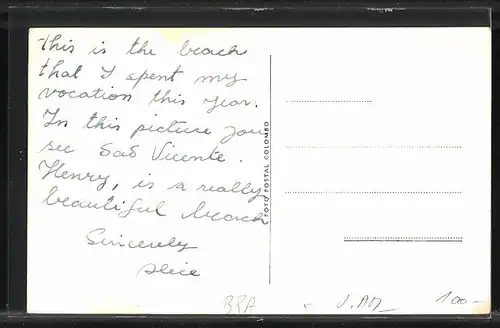 this is the beach
that I spent my
vocation this year.
In this picture you
see São Vicente.
Henry, is a really
beautiful beach
Sincerely
Alice
FOTO POSTAL COLOMBO
BRA
V.AM
100-